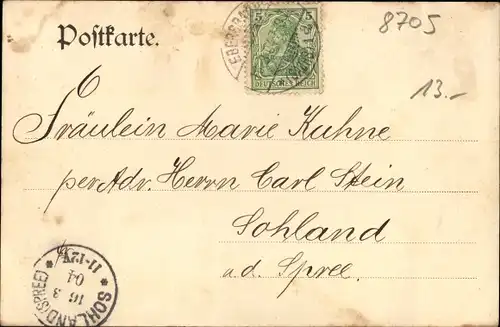 8705
Postkarte.
5 5
DEUTSCHES REICH
13.-
6
Fräulein Marie Kuhne
per Adr. Herrn Carl Stein
Sohland
a.d. Spree.
SOHLAND (SPREE)
16 3
04
11-12V.